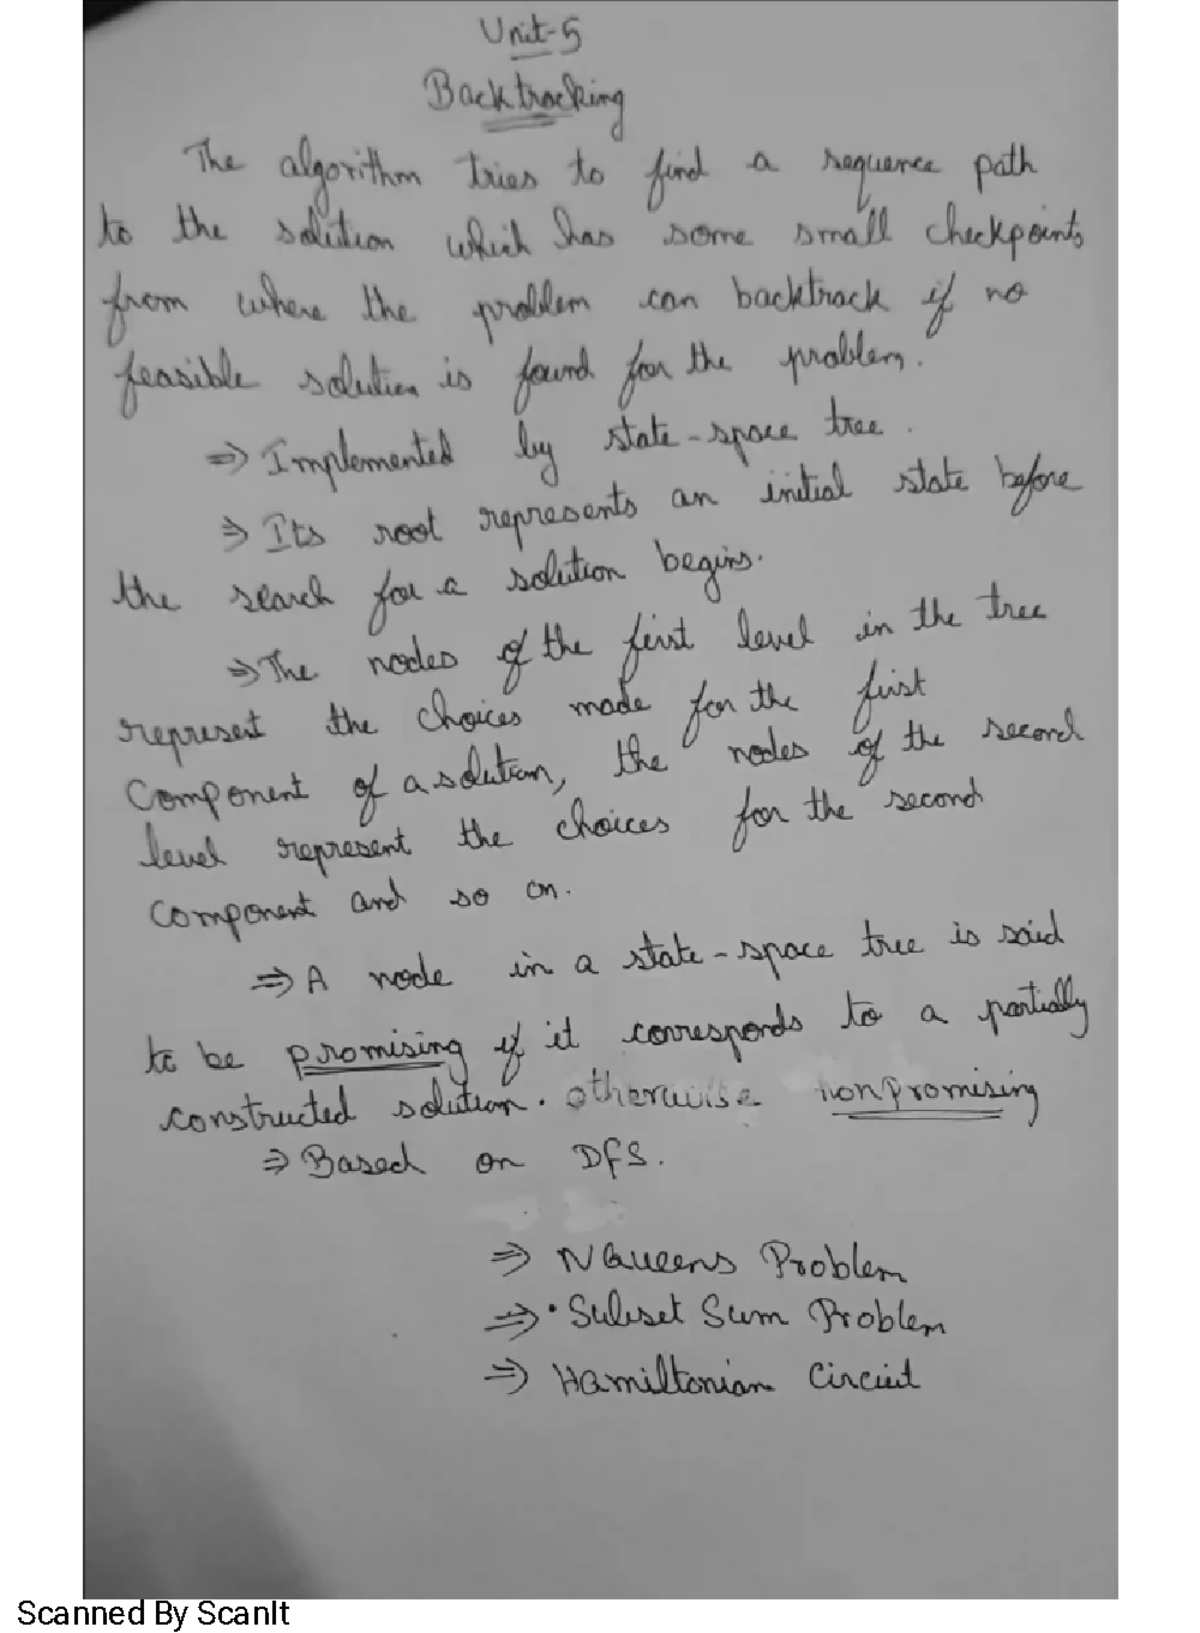 Unit-5
Backtracking
The algorithm tries to find a sequence path
to the solution which has some small checkpoints
from where the problem can backtrack if no
feasible solution is found for the problem.
⇒ Implemented by state-space tree.
⇒ Its root represents an initial state before
the search for a solution begins.
⇒ The nodes of the first level in the tree
represent the choices made for the first
component of a solution, the nodes of the second
level represent the choices for the second
component and so on.
⇒ A node in a state-space tree is said
to be promising if it corresponds to a partially
constructed solution. otherwise nonpromising
⇒ Based on DFS.
⇒ NQueens Problem
⇒ • Subset Sum Problem
⇒ Hamiltonian Circuit
Scanned By ScanIt